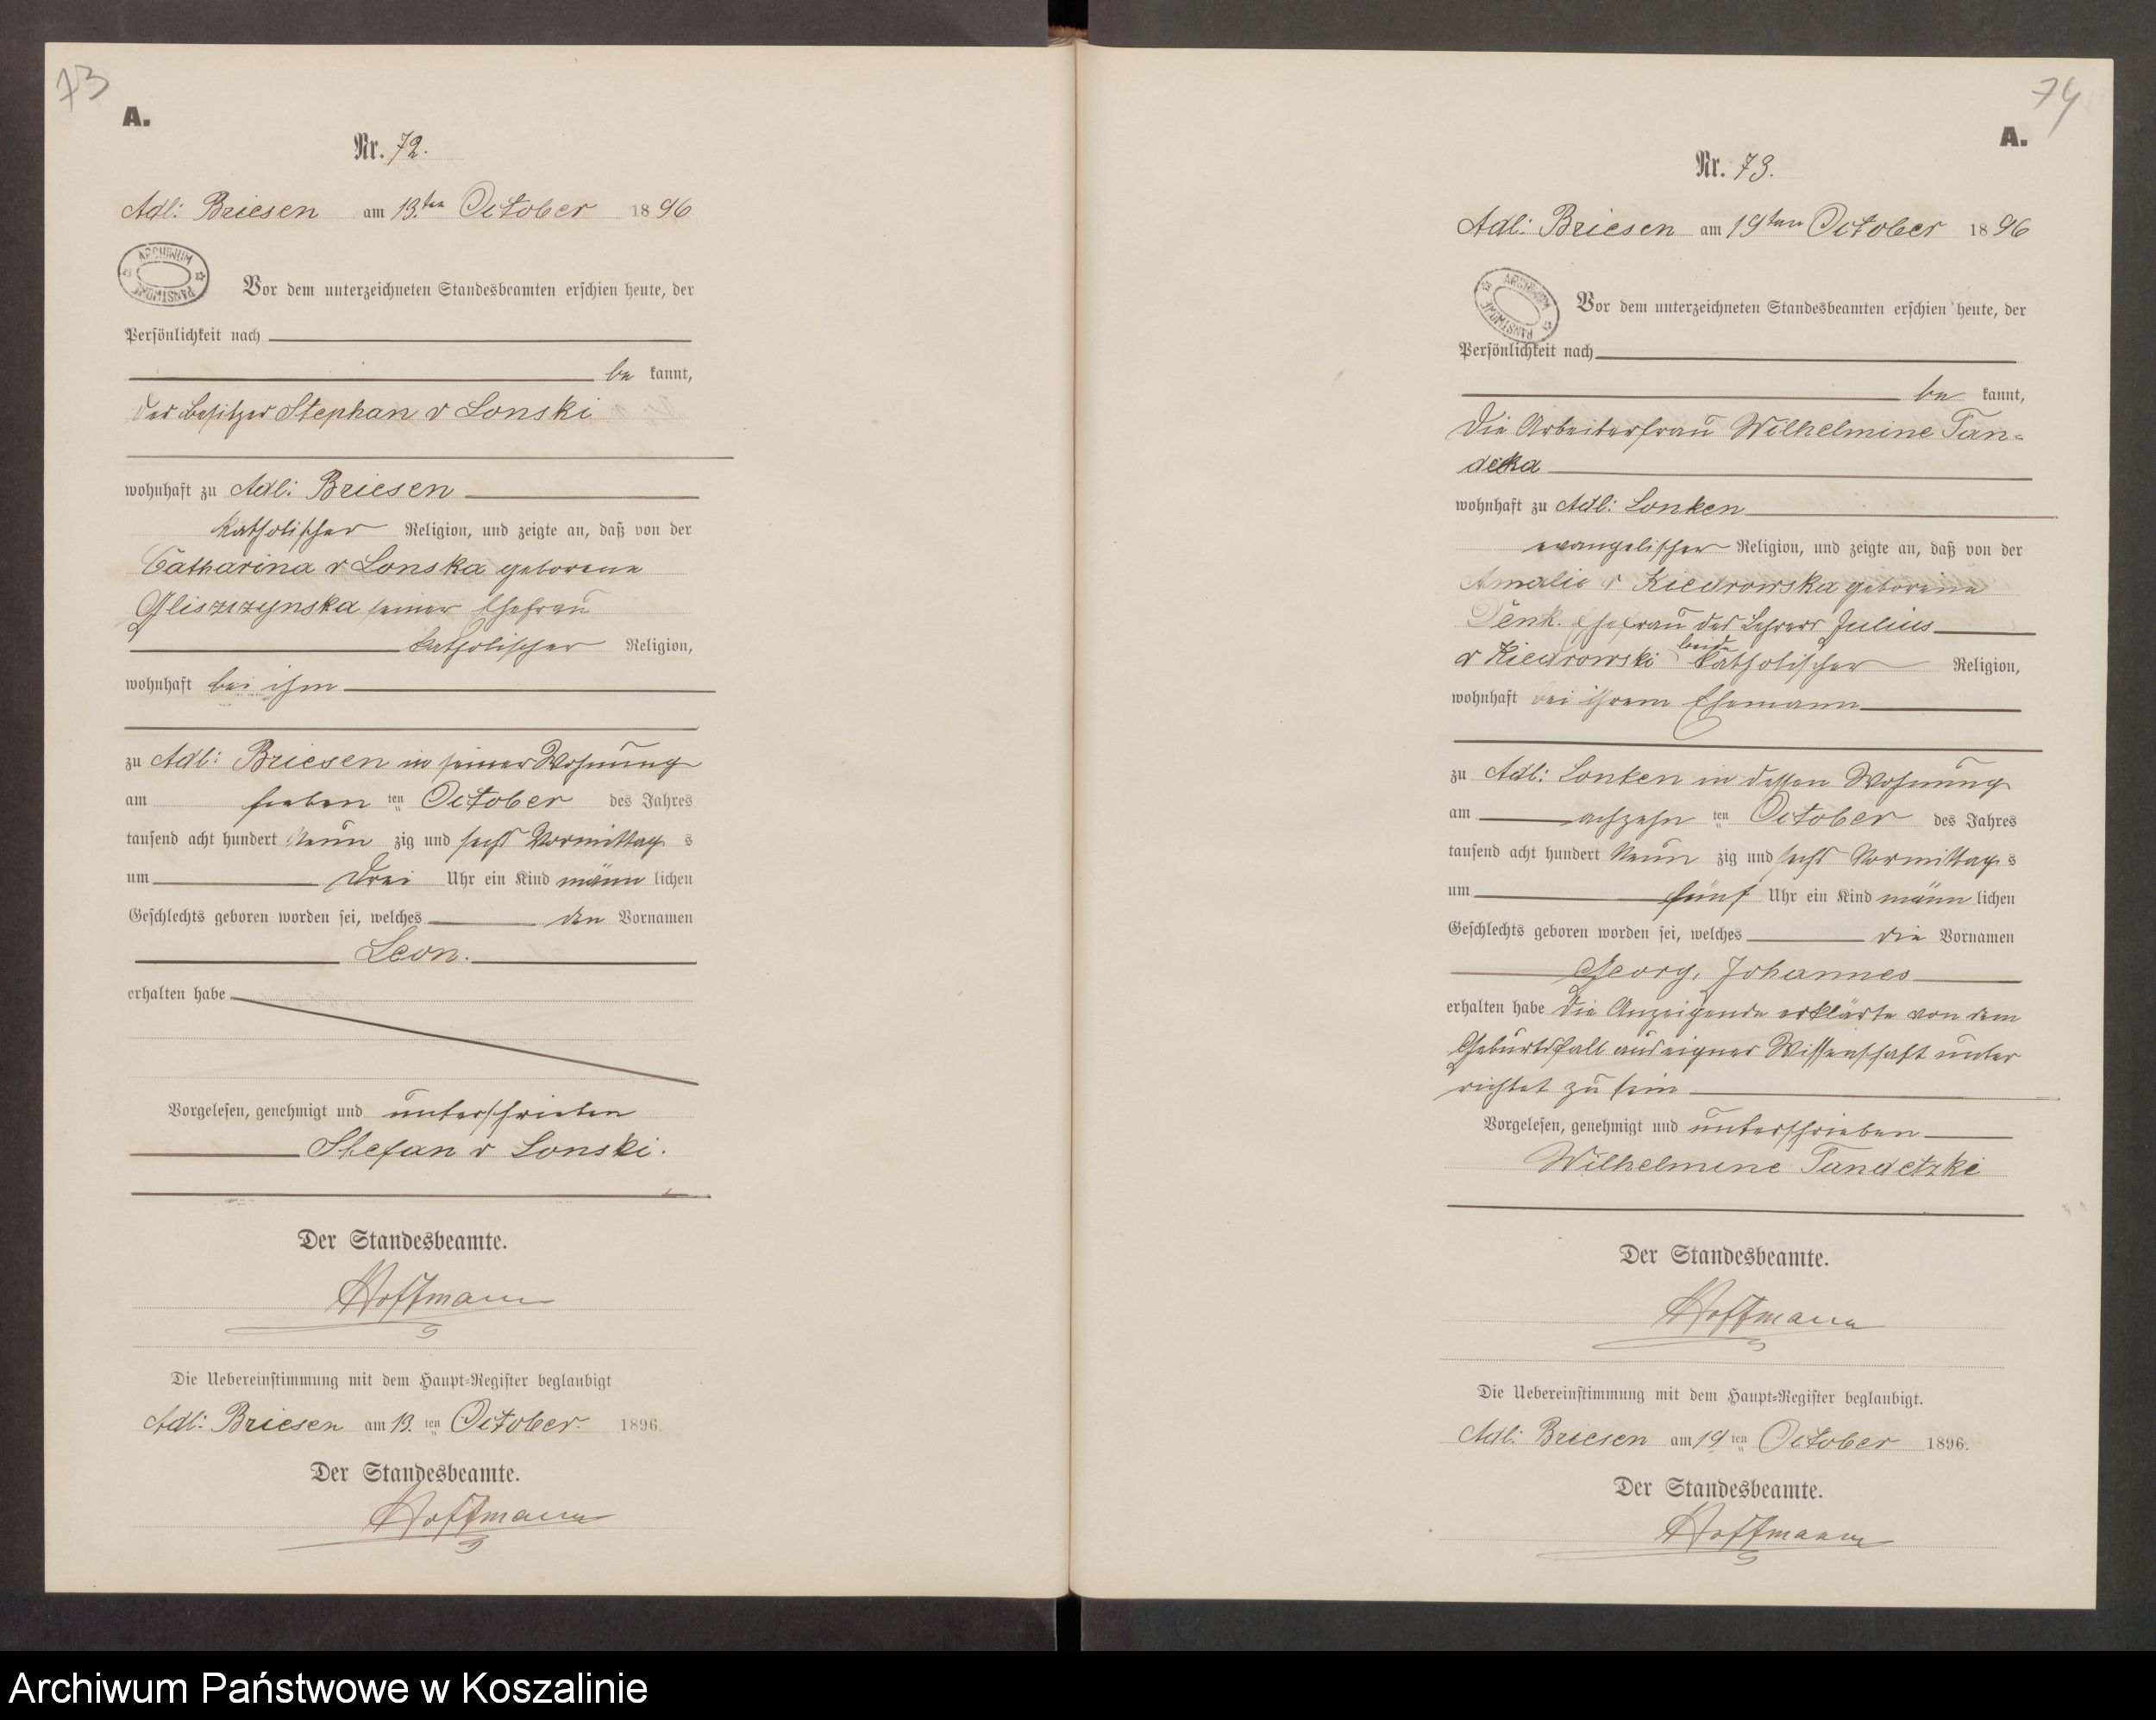 73
A.
Nr. 72.
Adl: Briesen am 13.ten October 1896
ARCHIWUM PAŃSTWOWE
Vor dem unterzeichneten Standesbeamten erschien heute, der
Persönlichkeit nach
be kannt,
der Besitzer Stephan v Lonski
wohnhaft zu Adl: Briesen
katholischer Religion, und zeigte an, daß von der
Catharina v Lonska geborene
Gliszczynska seiner Ehefrau
katholischer Religion,
wohnhaft bei ihm
zu Adl: Briesen in seiner Wohnung
am sieben ten October des Jahres
tausend acht hundert Neun zig und sechs Vormittag s
um drei Uhr ein Kind männ lichen
Geschlechts geboren worden sei, welches den Vornamen
Leon.
erhalten habe
Vorgelesen, genehmigt und unterschrieben
Stefan v Lonski.
Der Standesbeamte.
Hoffmann
Die Uebereinstimmung mit dem Haupt-Register beglaubigt
Adl: Briesen am 13. ten October. 1896.
Der Standesbeamte.
Hoffmann
74
A.
Nr. 73.
Adl: Briesen am 19ten October 1896
ARCHIWUM PAŃSTWOWE
Vor dem unterzeichneten Standesbeamten erschien heute, der
Persönlichkeit nach
be kannt,
die Arbeiterfrau Wilhelmine Tan-
detzka
wohnhaft zu Adl: Lonken
evangelischer Religion, und zeigte an, daß von der
Amalie v Kiedrowska geborene
Penk. Ehefrau des Lehrers Julius
v Kiedrowski beide katholischer Religion,
wohnhaft bei ihrem Ehemann
zu Adl: Lonken in dessen Wohnung
am achzehn ten October des Jahres
tausend acht hundert Neun zig und sechs Vormittag s
um fünf Uhr ein Kind männ lichen
Geschlechts geboren worden sei, welches die Vornamen
Georg, Johannes
erhalten habe die Anzeigende erklärte von dem
Geburtsfall aus eigner Wissenschaft unter
richtet zu sein
Vorgelesen, genehmigt und unterschrieben
Wilhelmine Tandetzki
Der Standesbeamte.
Hoffmann
Die Uebereinstimmung mit dem Haupt-Register beglaubigt.
Adl: Briesen am 19 ten October 1896.
Der Standesbeamte.
Hoffmann
Archiwum Państwowe w Koszalinie